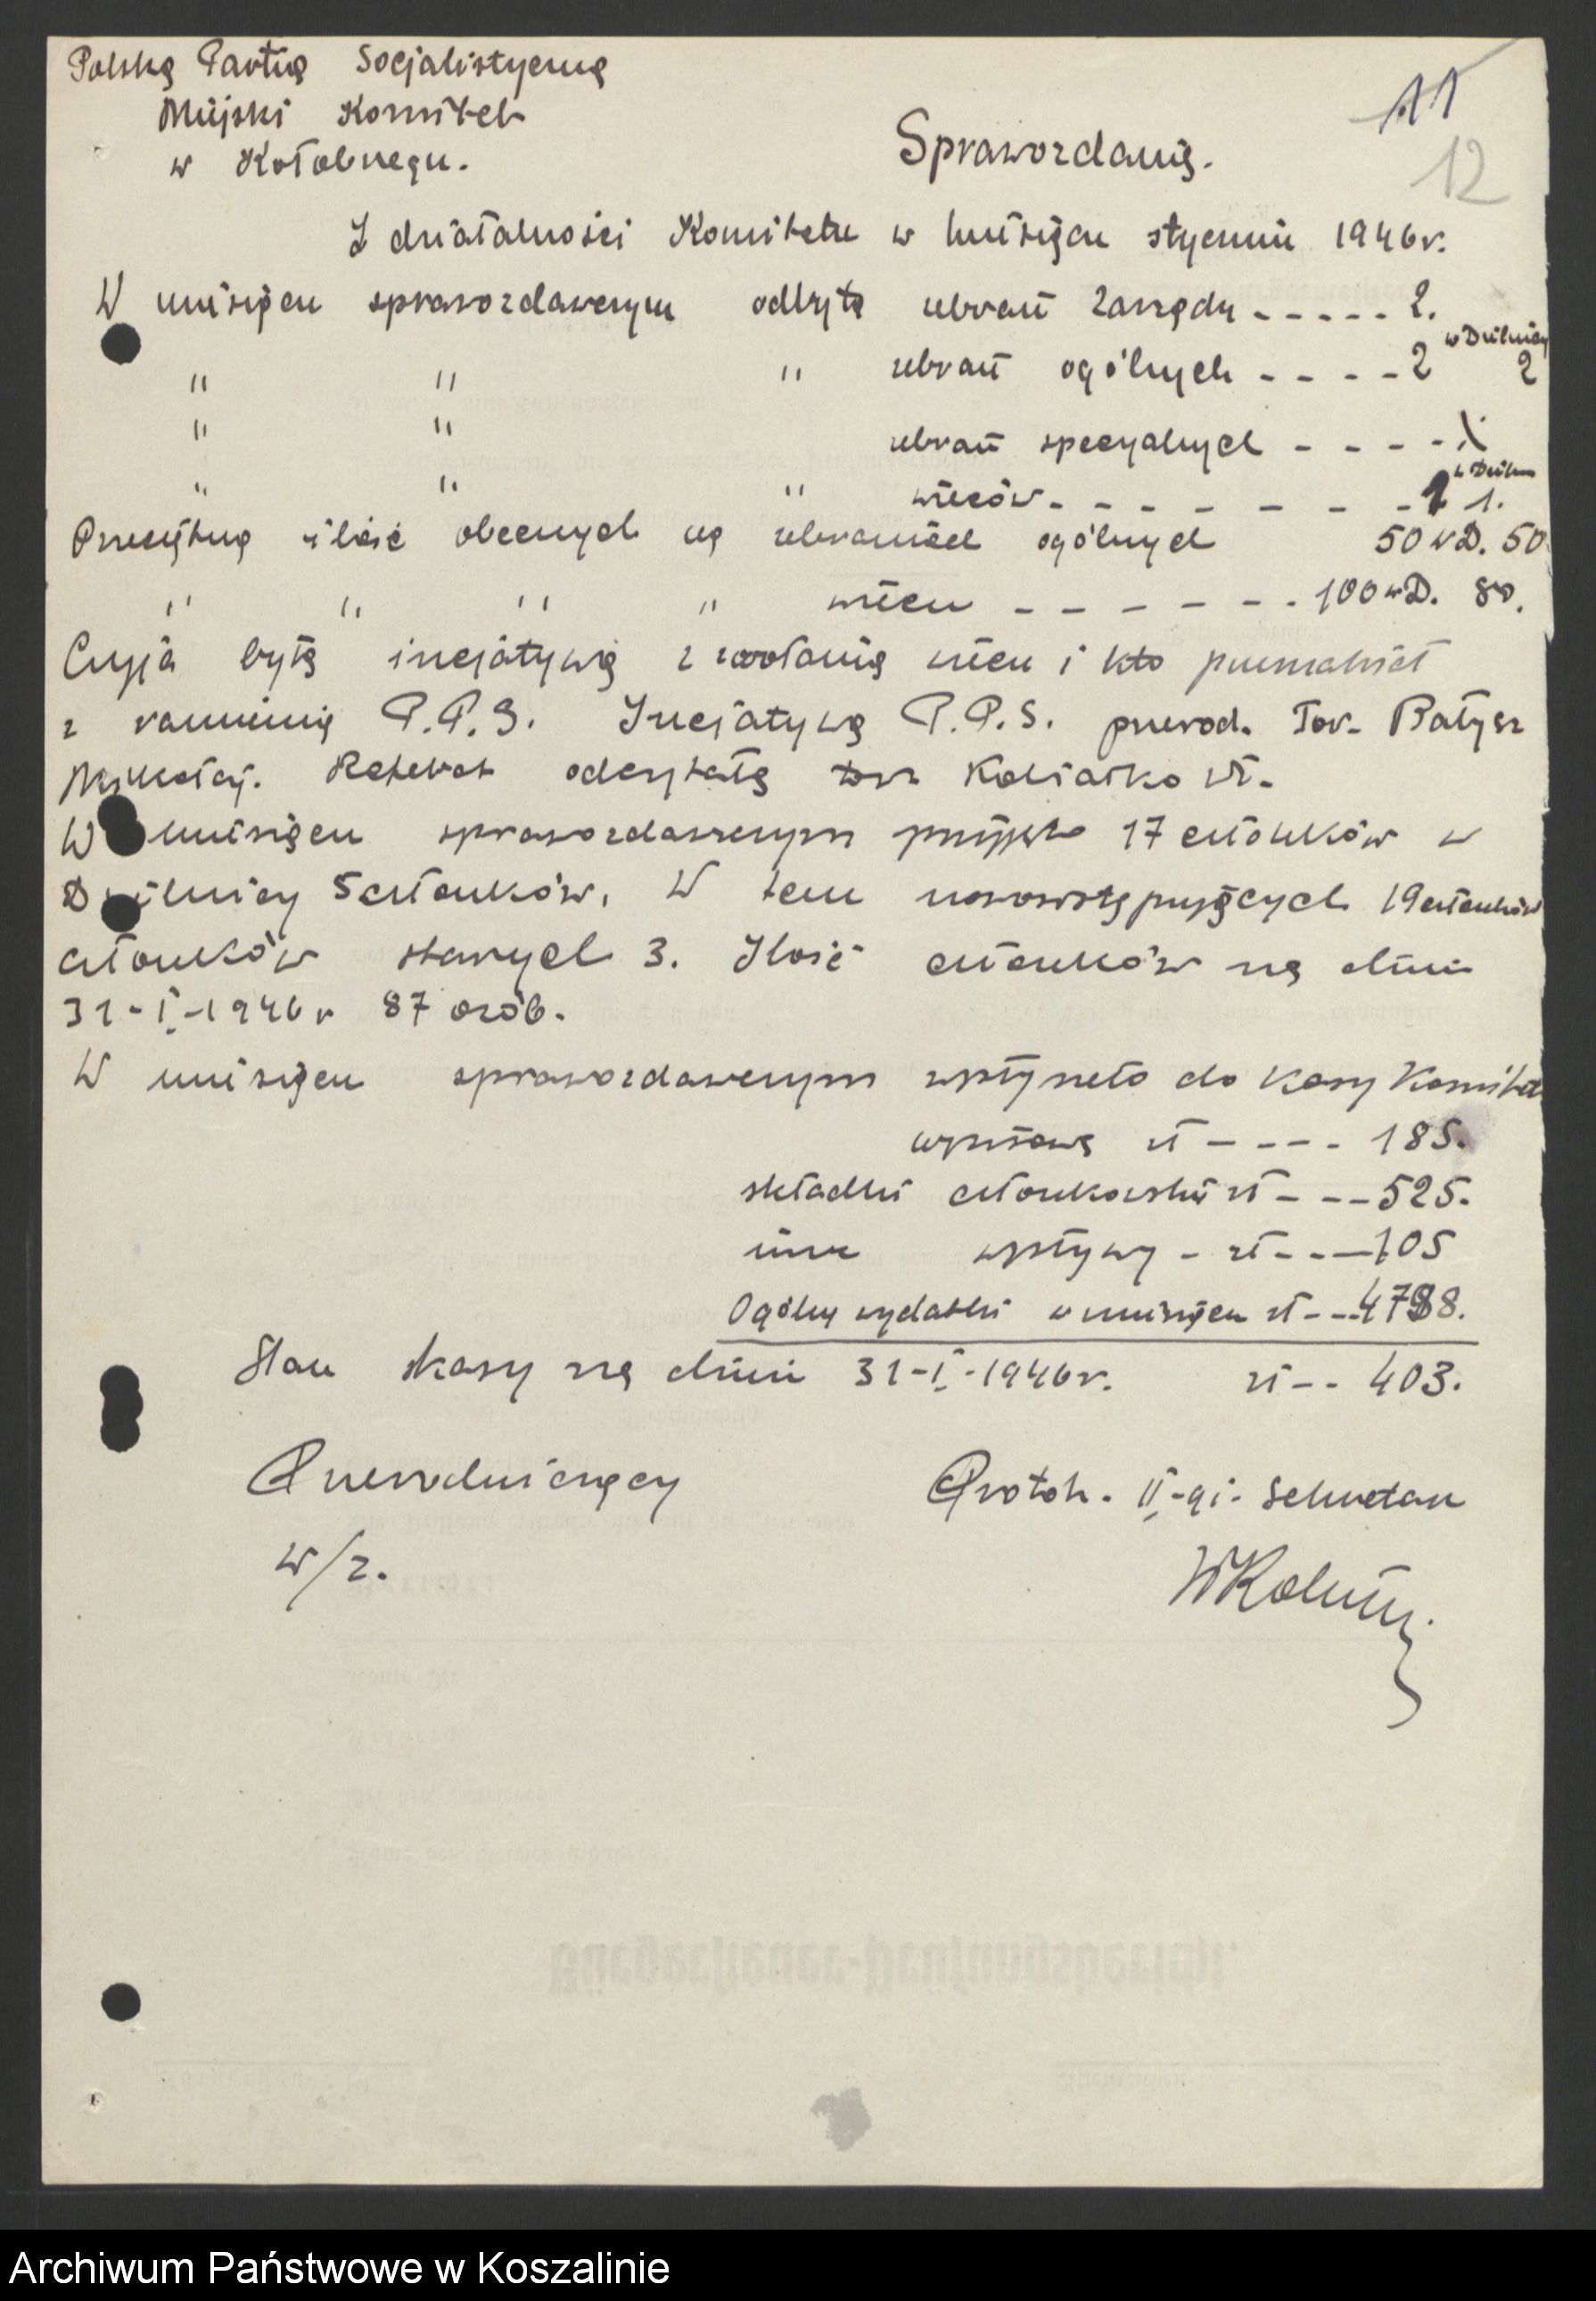 Polska Partia Socjalistyczna
Miejski Komitet
w Kołobrzegu.
11
12
Sprawozdanie.
Z działalności Komitetu w miesiącu styczniu 1946 r.
W miesiącu sprawozdawczym odbyto zebrań Zarządu - - - - - 2.
w Dzielnicy
" " " zebrań ogólnych - - - - 2 2
" " zebrań specyalnych - - - -
w Dzieln
" " " wieców - - - - - - - 1 1.
Przeciętna ilość obecnych na zebraniach ogólnych 50 w D. 50
" " " " wiecu - - - - - - 100 w D. 80.
Czyja była inicjatywa zwołania wiecu i kto przemawiał
z ramienia P.P.S. Inicjatywa P.P.S. przewod. Tow. Bałysz
Mikołaj. Referat odczytała tow. Kolśatko Wł.
W miesiącu sprawozdawczym przyjęto 17 członków w
Dzielnicy 5 członków. W tem nowowstępujących 19 członków
członków starych 3. Ilość członków na dzień
31-I-1946 r 87 osób.
W miesiącu sprawozdawczym wpłynęło do kasy Komitetu
wpisowe zł - - - - 185.
składki członkowskie zł - - - 525.
inne wpływy - zł - - - 105
Ogólny wydatki w miesiącu zł - - - 4788.
Stan kasy na dzień 31-I-1946 r. zł - - 403.
Przewodniczący
Protok. II-gi Sekretarz
w/z.